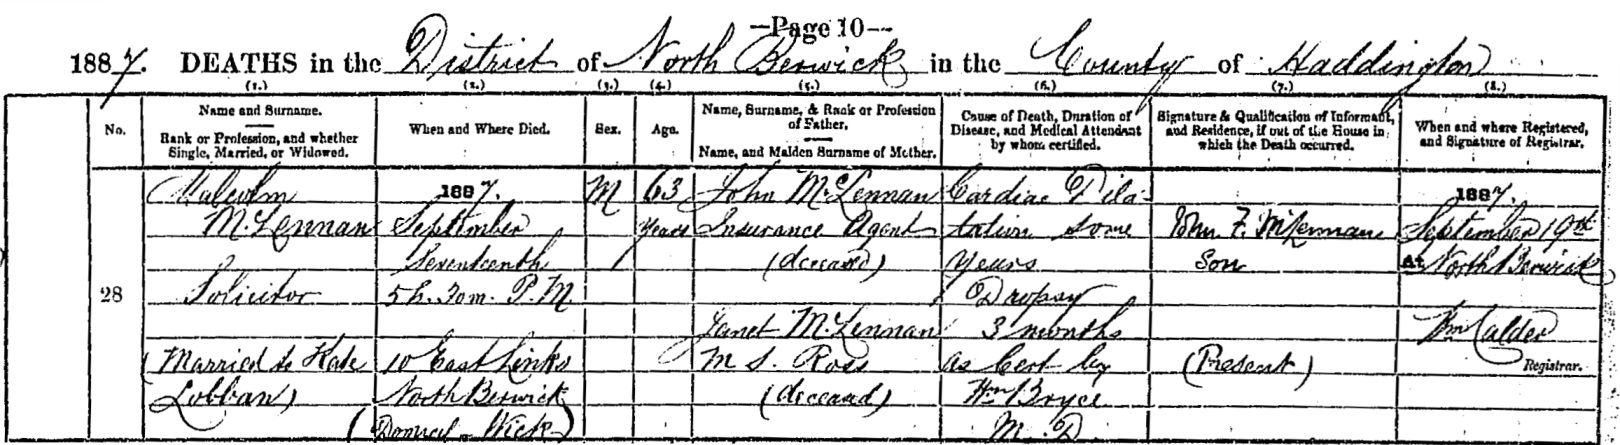 —Page 10—
1887. DEATHS in the District of North Berwick in the County of Haddington
(1.) (2.) (3.) (4.) (5.) (6.) (7.) (8.)
No.
Name and Surname.
Rank or Profession, and whether
Single, Married, or Widowed.
When and Where Died.
Sex.
Age.
Name, Surname, & Rank or Profession
of Father.
Name, and Maiden Surname of Mother.
Cause of Death, Duration of
Disease, and Medical Attendant
by whom certified.
Signature & Qualification of Informant,
and Residence, if out of the House in
which the Death occurred.
When and where Registered,
and Signature of Registrar.
28
Malcolm
McLennan
Solicitor
(Married to Kate
Lobban)
1887.
September
Seventeenth
5h. 30m. P.M
10 East Links
North Berwick
(Domicil Wick)
M
63
years
John McLennan
Insurance Agent
(deceased)
Janet McLennan
M.S. Ross
(deceased)
Cardiac Dila-
tation some
years
Dropsy
3 months
As Cert by
Wm Bryce
M.D.
John F. McLennan
Son
(Present)
1887.
September 19th
At North Berwick
Wm Calder
Registrar.